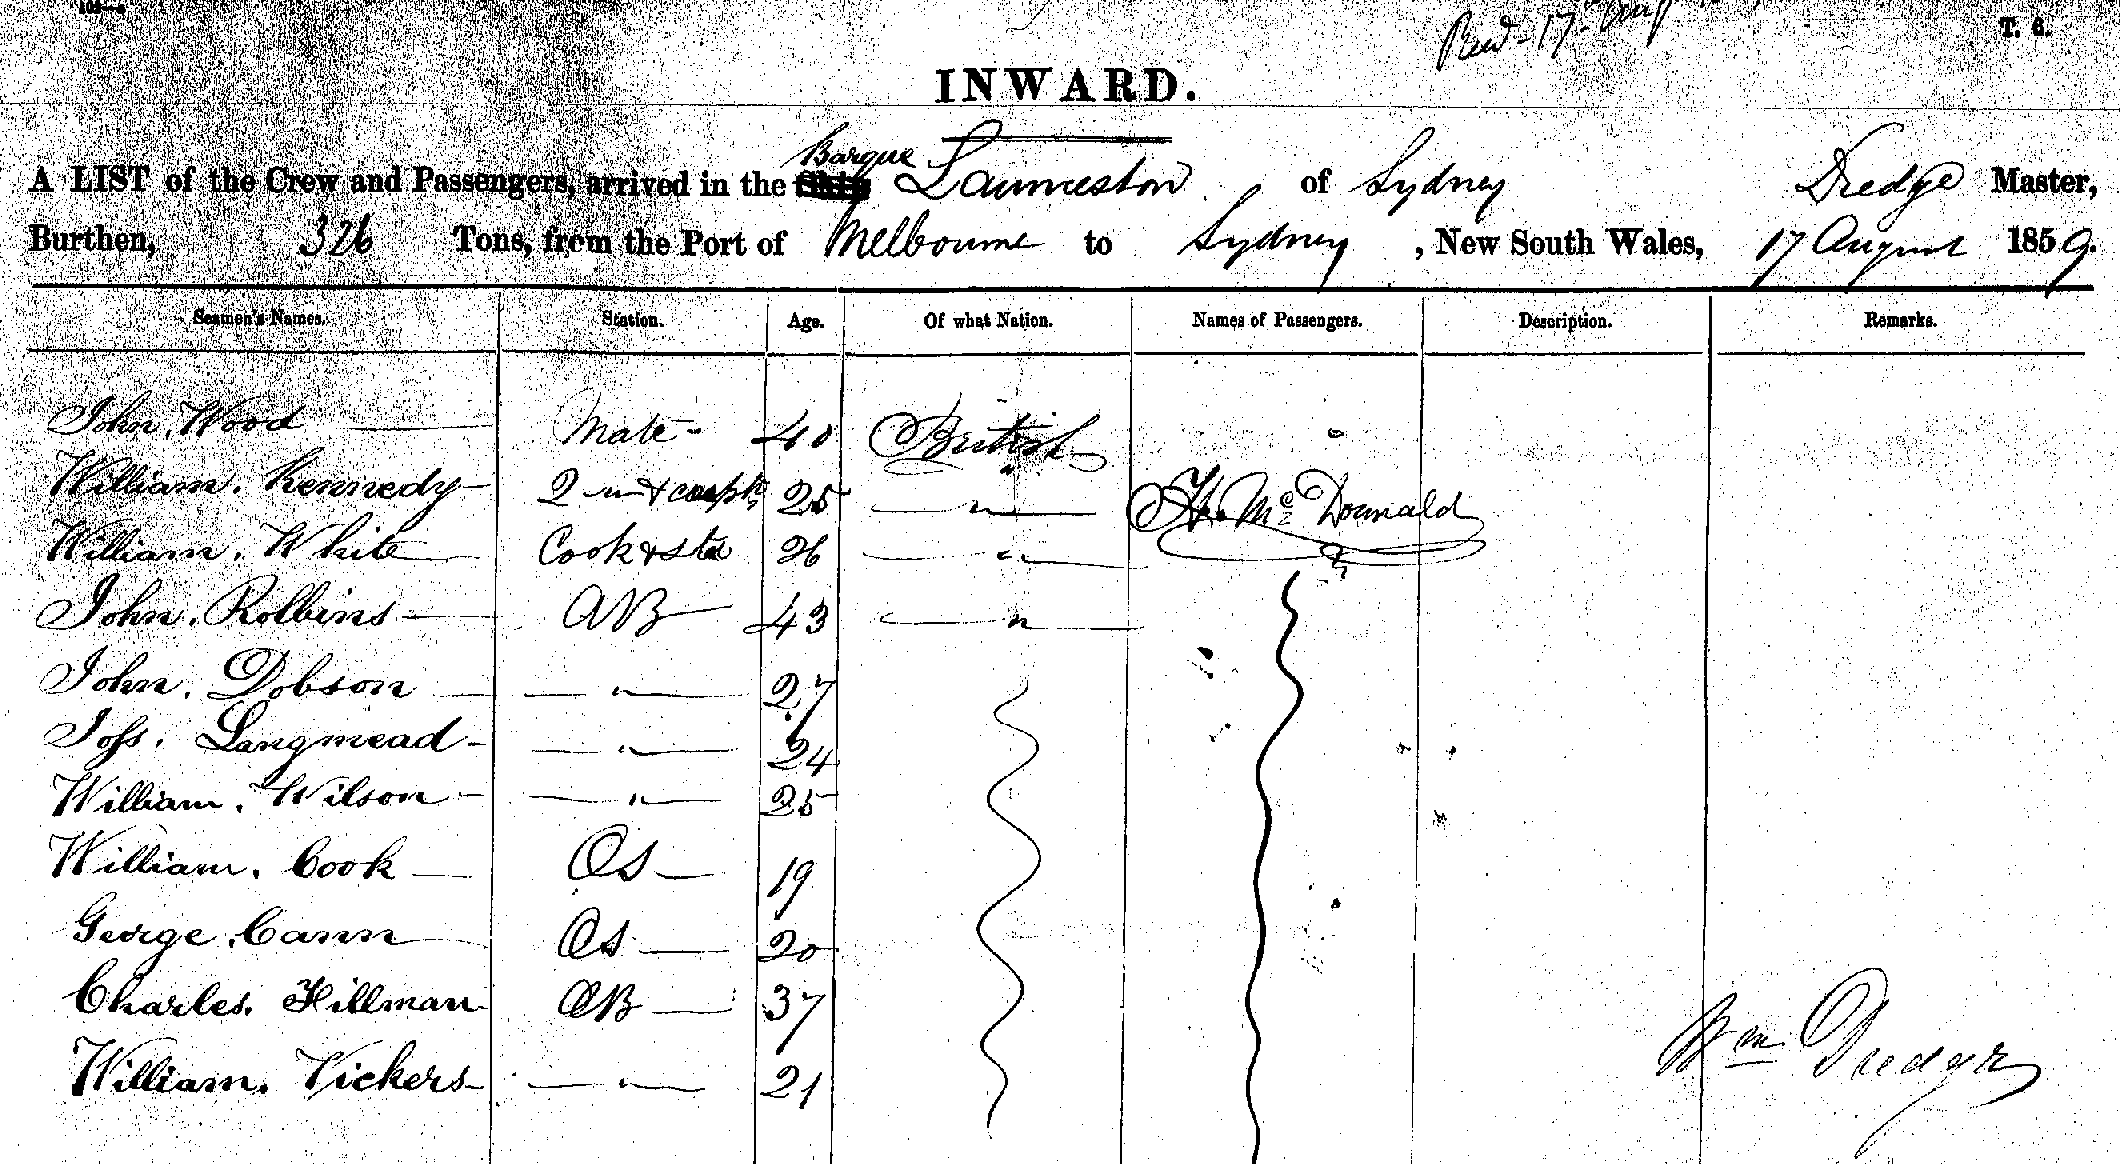 Recd 17th Aug
T. 6.
INWARD.
Barque
A LIST of the Crew and Passengers, arrived in the Ship Launceston of Sydney Dredge Master,
Burthen, 326 Tons, from the Port of Melbourne to Sydney, New South Wales, 17 August 1859.
Seamen's Names. Station. Age. Of what Nation. Names of Passengers. Description. Remarks.
John. Wood Mate - 40 British
William. Kennedy 2 " & carptr 25 " Mc Donnald
William. White Cook & std 26 "
John. Robbins AB 43 "
John. Dobson " 27
Joss. Langmead " 24
William. Wilson " 25
William. Cook OS 19
George. Cann OS 20
Charles. Hillman AB 37
William. Vickers " 21
Wm Dredge